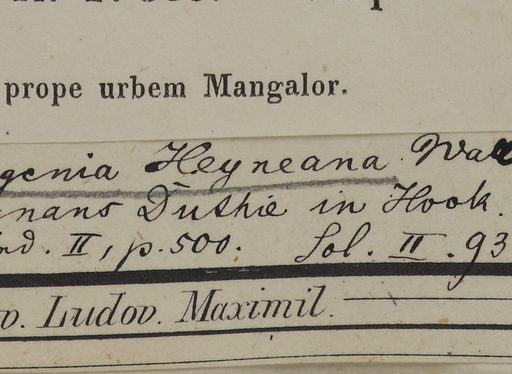 prope urbem Mangalor.
genia Heyneana Wall
nans Duthie in Hook.
Ind. II, p. 500. Sol. II. 93
v. Ludov. Maximil.